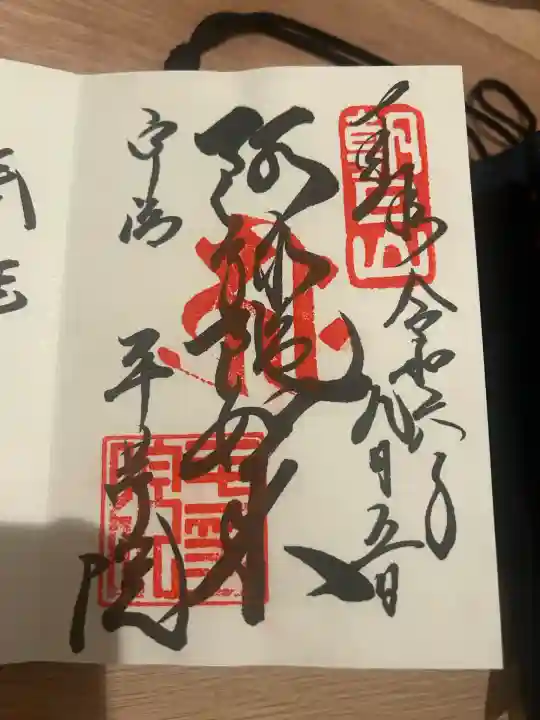 奉拝
令和六年
九月五日
阿弥陀如来
宇治
平等院